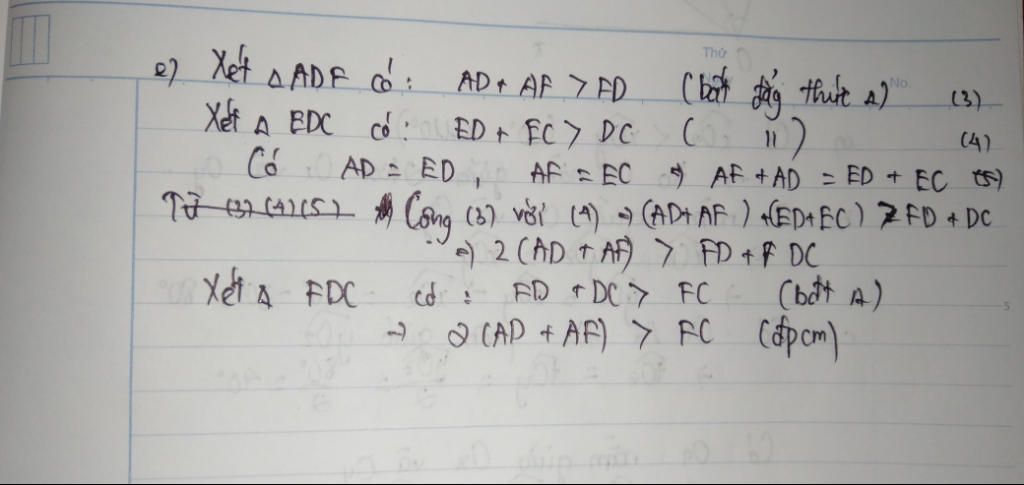 Thứ
No.
e) Xét Δ ADF có: AD + AF > FD (bất đẳg thức Δ) (3)
Xét Δ EDC có: ED + EC > DC ( 〃 ) (4)
Có AD = ED, AF = EC ⇒ AF + AD = ED + EC (5)
Từ (3) (4) (5) Cộng (3) với (4) ⇒ (AD + AF) + (ED + EC) > FD + DC
⇒ 2 (AD + AF) > FD + DC
Xét Δ FDC có: FD + DC > FC (bđt Δ)
→ 2 (AD + AF) > FC (đpcm)
5